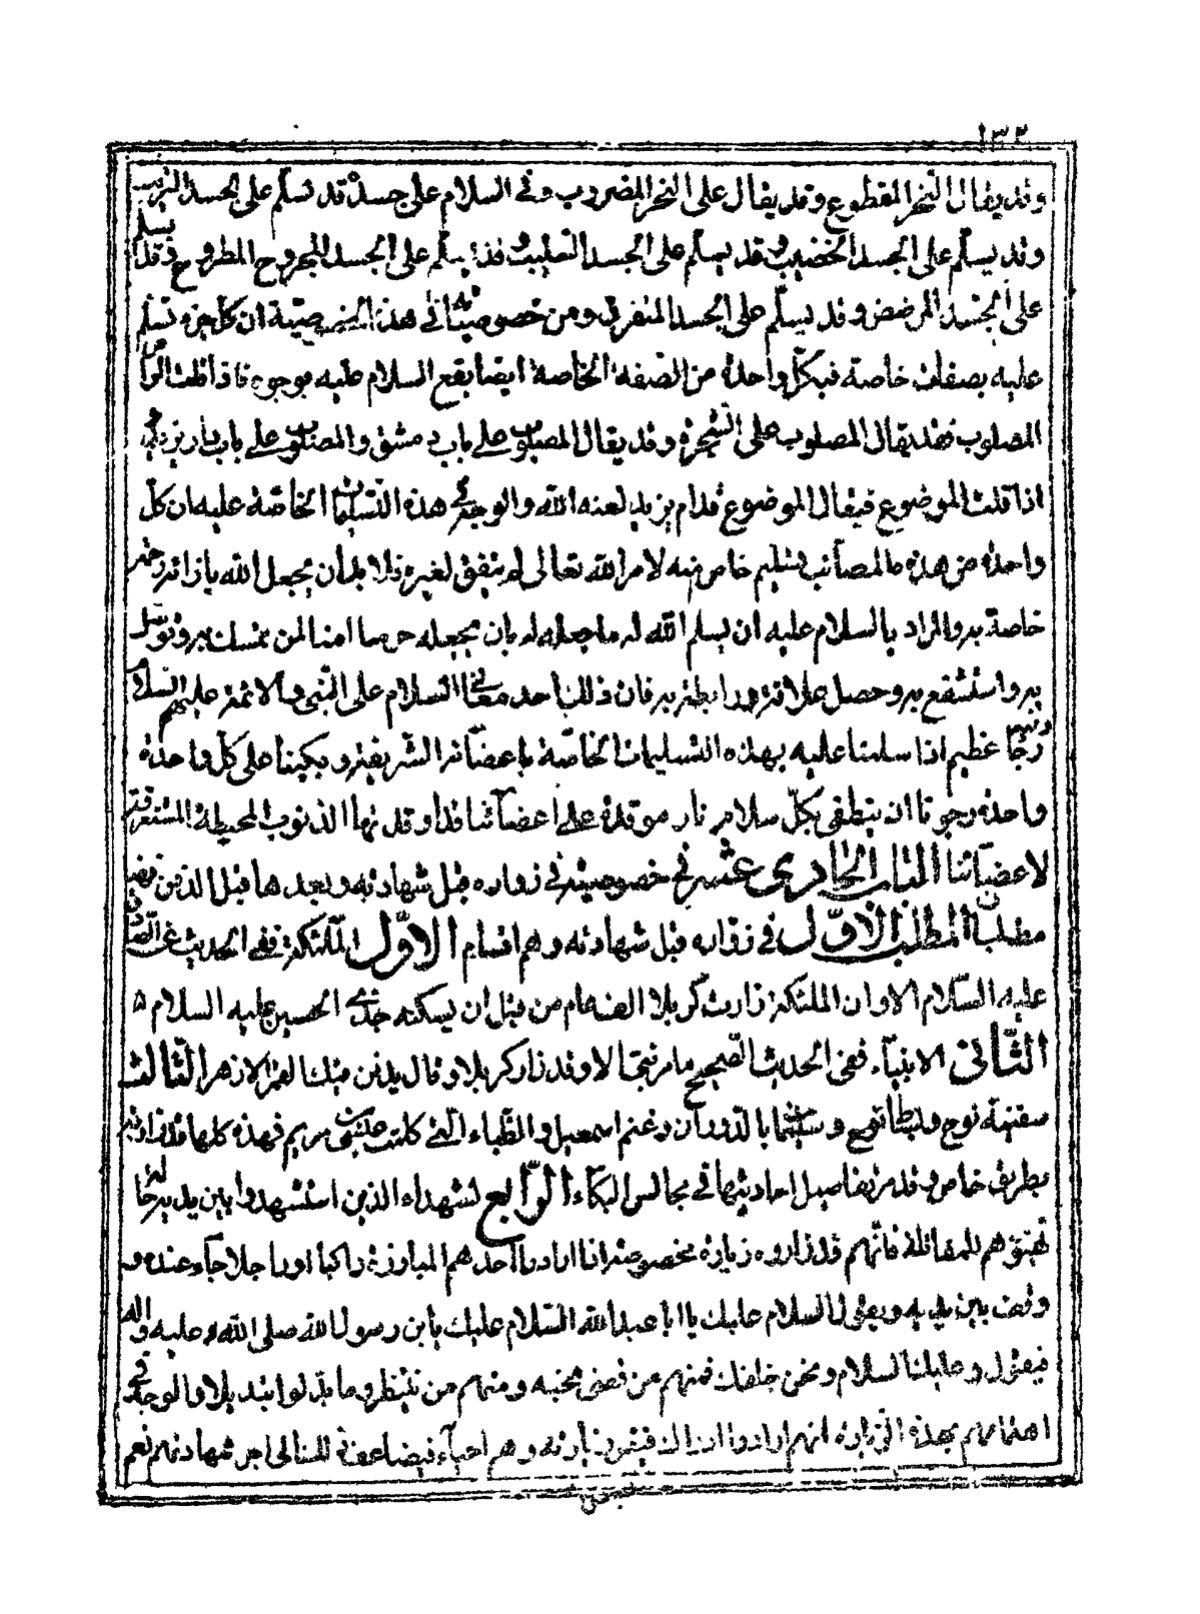 ١٣٢
وقد يقال النحر المقطوع وقد يقال على النحر المضروب وفي السلام على جسده قد تسلم على الجسد التريب
وقد يسلم على الجسد الخضيب وقد يسلم على الجسد السليب وقد يسلم على الجسد المجروح المطروح وقد يسلم
على الجسد المرضض وقد يسلم على الجسد المتفرق ومن خصوصيته في هذا ان كل جزء تسلم
عليه بصفات خاصة فبكل واحدة من الصفة الخاصة ايضا يقع السلام عليه بوجوه فاذا قلت الراس
المصلوب فقد يقال المصلوب على الشجرة وقد يقال المصلوب على باب دمشق والمصلوب على باب دار يزيد
اذا قلت الموضوع فيقال الموضوع قدام يزيد لعنه الله والوجه في هذه التسليمات الخاصة عليه ان كل
واحدة من هذه المصائب تسليم خاص منه لامر الله تعالى لم يتفق لغيره فلا بد ان يجعل الله بازائه رحمة
خاصة به والمراد بالسلام عليه ان يسلم الله له ما جعله له بان يجعله حرما امنا لمن تمسك به وتوسل
به واستشفع به وحصل علاقة ورابطة به فان ذلك احد معاني السلام على النبي والائمة عليهم السلام
رجاء عظيم اذا سلمنا عليه بهذه التسليمات الخاصة باعضائه الشريفة وبكينا على كل واحدة
واحدة رجونا ان ينطفي بكل سلام نار موقدة على اعضائنا قد اوقدتها الذنوب المحيطة المستغرقة
لاعضائنا الباب الحادي عشر في خصوصيته في زواره قبل شهادته وبعدها قبل الدفن فيه
مطلبان المطلب الاول في زواره قبل شهادته وهم اقسام الاول الملائكة ففي الحديث عن الصادق
عليه السلام الا وان الملئكة زارت كربلا الف عام من قبل ان يسكنه جدي الحسين عليه السلام
الثاني الانبياء ففي الحديث الصحيح ما من نبي الا وقد زار كربلا وقال يدفن فيك القمر الازهر الثالث
سفينة نوح وبساط سليمان وغنم اسمعيل والظباء التي كلمت عيسى بن مريم فهذه كلها قد زارته
بطريق خاص وقد مر تفاصيل احاديثها في مجالس البكاء الرابع الشهداء الذين استشهدوا بين يديه
للمقاتلة فانهم قد زاروه زيارة مخصوصة اذا اراد احدهم المبارزة راكبا او راجلا جاء عنده و
وقف بين يديه ويقول السلام عليك يا ابا عبد الله السلام عليك يابن رسول الله صلى الله عليه واله
فيقول وعليك السلام ونحن خلفك فمنهم من قضى نحبه ومنهم من ينتظر وما بدلوا تبديلا والوجه في
اهتمامهم بهذه الزيارة انهم ارادوا ادراك فيض زيارته وهم احياء فيضاعف ذلك الى اجر شهادتهم نعم